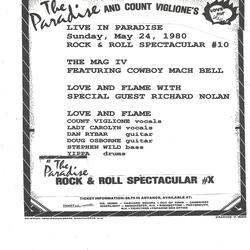 The Paradise AND COUNT VIGLIONE'S
LIVE IN PARADISE
Sunday, May 24, 1980
ROCK & ROLL SPECTACULAR #10
THE MAG IV
FEATURING COWBOY MACH BELL
LOVE AND FLAME WITH
SPECIAL GUEST RICHARD NOLAN
LOVE AND FLAME
COUNT VIGLIONE vocals
LADY CAROLYN vocals
DAN RYBAR guitar
DOUG OSBORNE guitar
STEPHEN WILD bass
YIPPA drums
At The Paradise
ROCK & ROLL SPECTACULAR #X
TICKET INFORMATION: $3.75 IN ADVANCE, AVAILABLE AT: